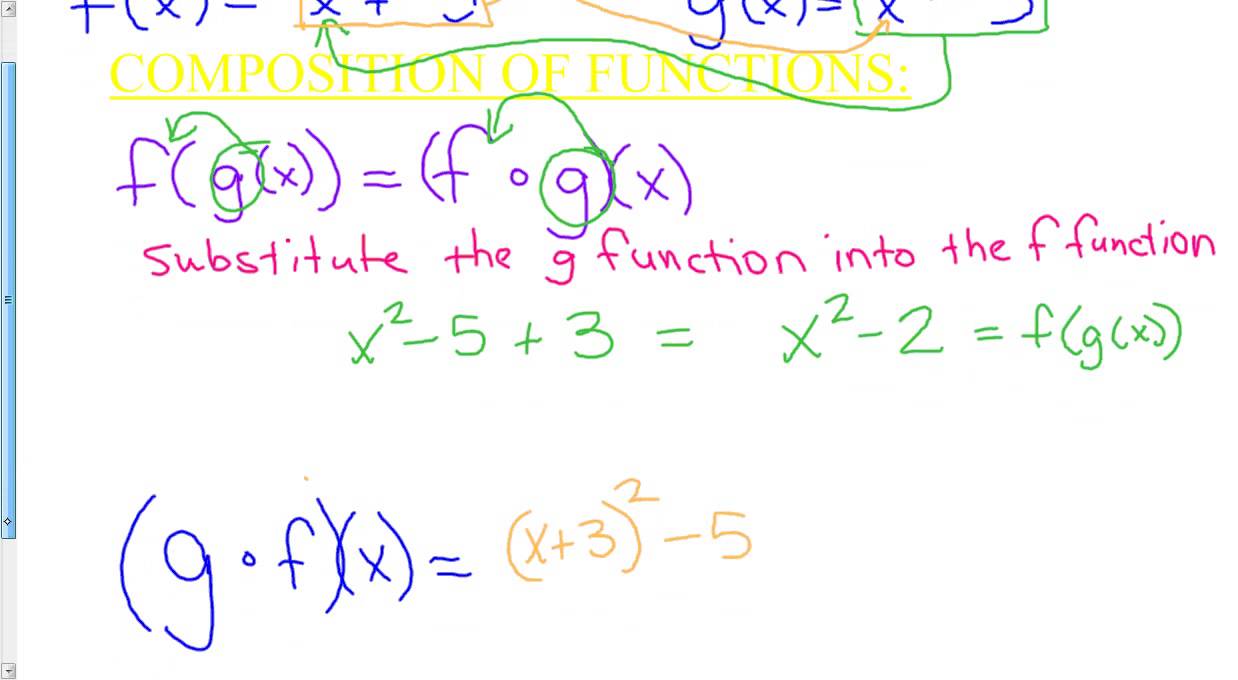 f(x) = x + 3 g(x) = x
COMPOSITION OF FUNCTIONS:
f(g(x)) = (f ∘ g)(x)
substitute the g function into the f function
x² - 5 + 3 = x² - 2 = f(g(x))
(g ∘ f)(x) = (x+3)² - 5